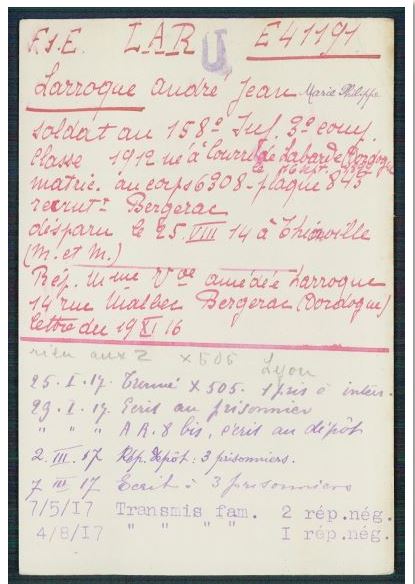 F.S.E. LAR U E 41191
Larroque André Jean Marie Philippe
soldat au 158e Inf. 3e comp.
Classe 1912 né à Cours de Labarde (Dordogne
le Sept.
matric. au corps 6308 - plaque 843
recrutt Bergerac
disparu le 25. VIII 14 à Thiaville
(M. et M.)
Rép. Mme Vve Amédée Larroque
14 rue Malbec Bergerac (Dordogne)
lettre du 19 XI 16
rien aux Z x 505 Lyon
25. I. 17. Trouvé x 505. 1 pris à interr.
29. I. 17. Ecrit au prisonnier
" " " A R. 8 bis, écrit au dépôt
2. III. 17 Rép. Dépôt : 3 prisonniers.
7 III 17 Ecrit à 3 prisonniers
7/5/I7 Transmis fam. 2 rép.nég.
4/8/I7 " " " " I rép.nég.